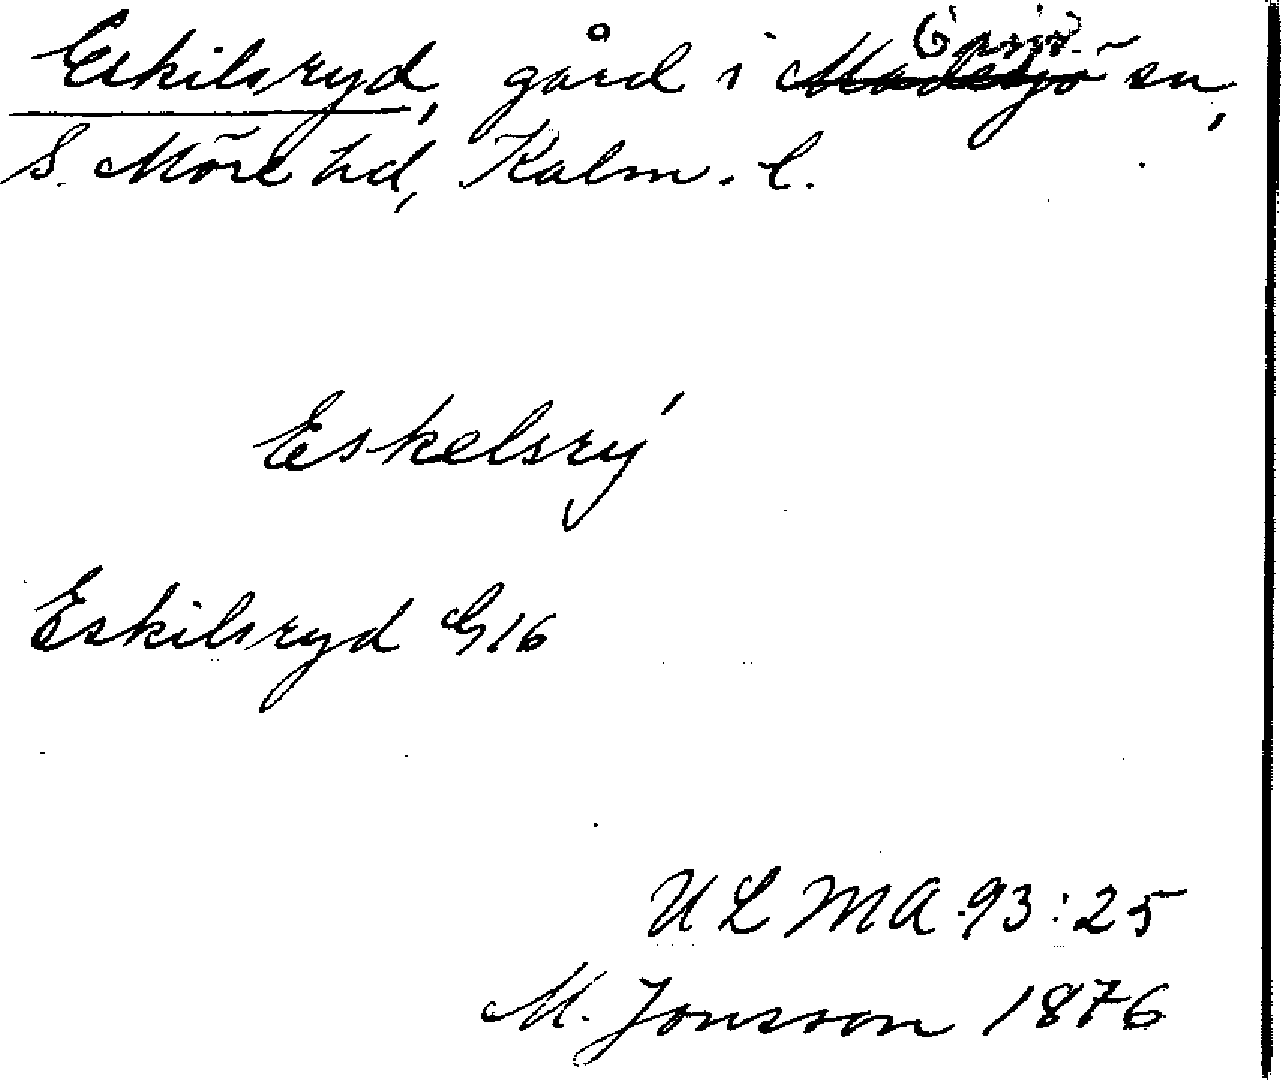 Eskilsryd, gård i ~~Madesjö~~ Örsjö sn,
S. Möre hd, Kalm. l.
Eskelsrý
Eskilsryd G16
ULMA 93:25
M. Jonsson 1876